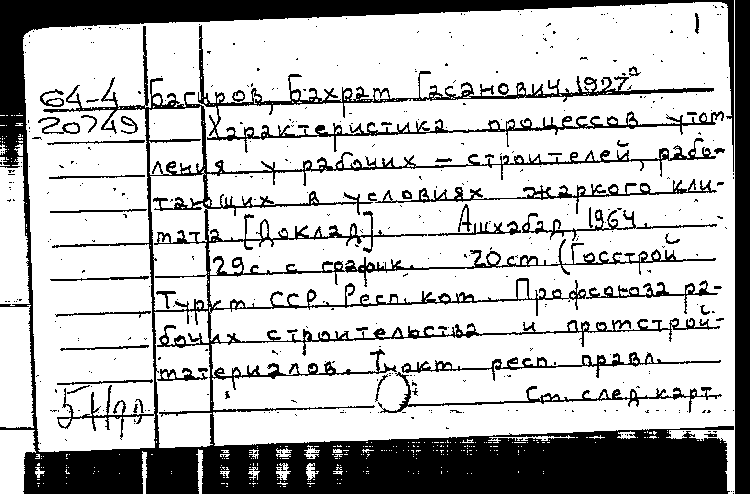 1
64-4 Багиров, Бахрат Гасанович, 1927
20749 Характеристика процессов утом-
ления у рабочих – строителей, рабо-
тающих в условиях жаркого кли-
мата. [Доклад]. Ашхабад, 1964.
29 с. с график. 20 см. (Госстрой
Туркм. ССР. Респ. ком. Профсоюза ра-
бочих строительства и промстрой-
материалов. Туркм. респ. правл.
См. след. карт